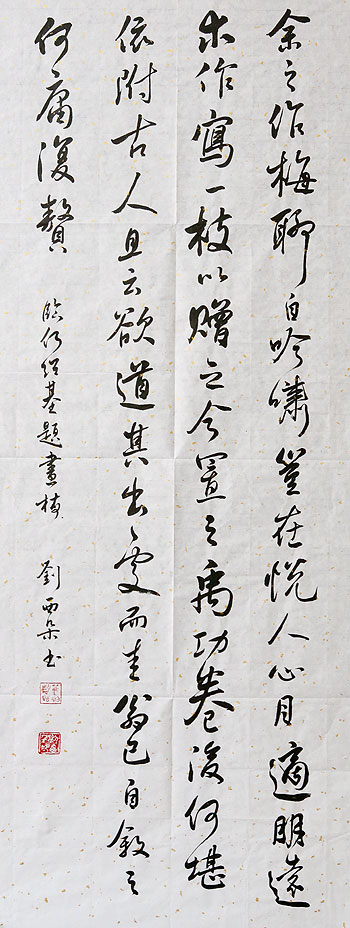 余之作梅聊自吟啸岂在悦人心目適明遠
求作寫一枝以贈之今置之禹功卷後何堪
依附古人且云欲道其出處而圭翁已自叙之
何庸復贅
臨仍紹基題畫梅
劉雲泉书